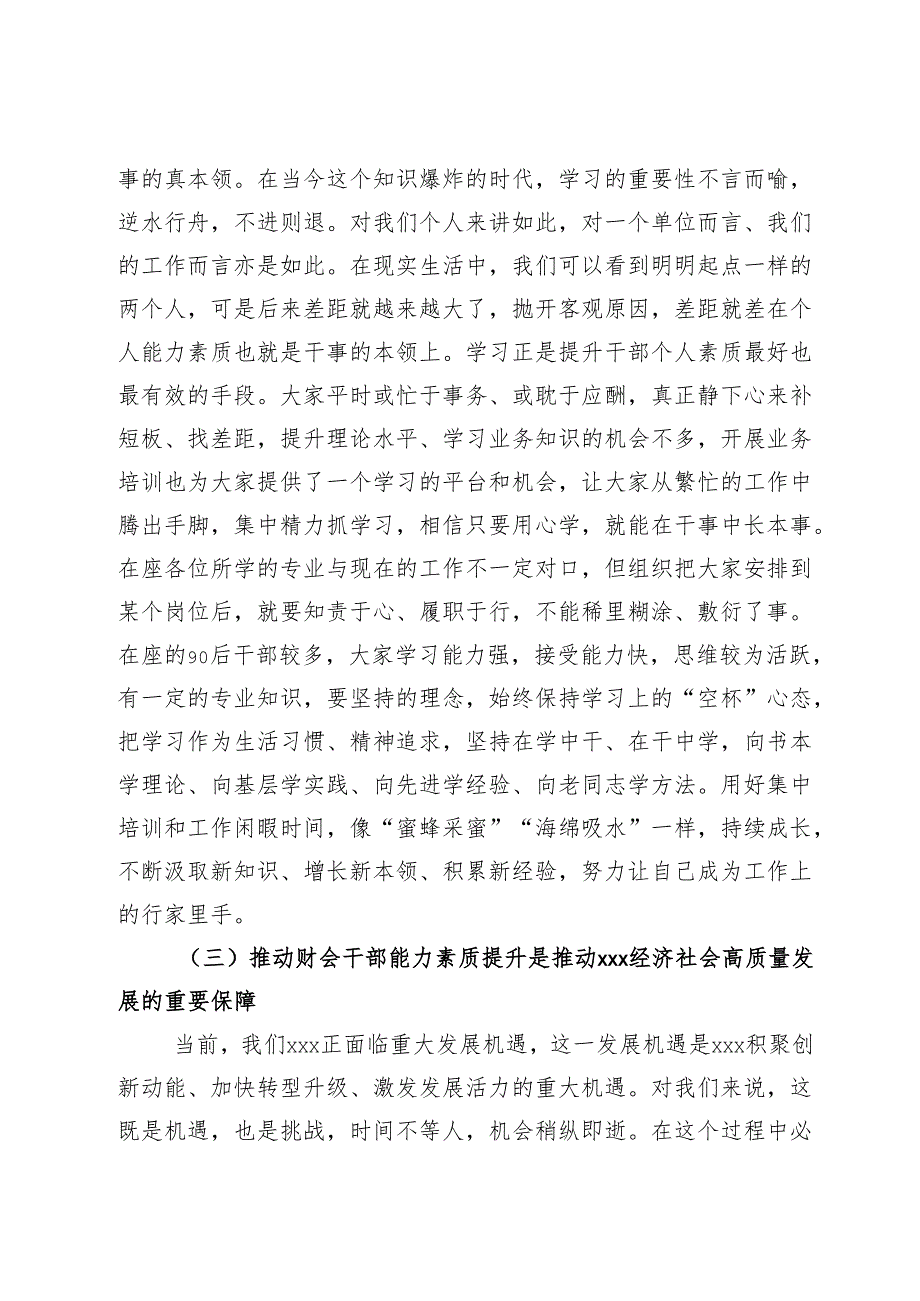 事的真本领。在当今这个知识爆炸的时代，学习的重要性不言而喻，
逆水行舟，不进则退。对我们个人来讲如此，对一个单位而言、我们
的工作而言亦是如此。在现实生活中，我们可以看到明明起点一样的
两个人，可是后来差距就越来越大了，抛开客观原因，差距就差在个
人能力素质也就是干事的本领上。学习正是提升干部个人素质最好也
最有效的手段。大家平时或忙于事务、或耽于应酬，真正静下心来补
短板、找差距，提升理论水平、学习业务知识的机会不多，开展业务
培训也为大家提供了一个学习的平台和机会，让大家从繁忙的工作中
腾出手脚，集中精力抓学习，相信只要用心学，就能在干事中长本事。
在座各位所学的专业与现在的工作不一定对口，但组织把大家安排到
某个岗位后，就要知责于心、履职于行，不能稀里糊涂、敷衍了事。
在座的90后干部较多，大家学习能力强，接受能力快，思维较为活跃，
有一定的专业知识，要坚持的理念，始终保持学习上的“空杯”心态，
把学习作为生活习惯、精神追求，坚持在学中干、在干中学，向书本
学理论、向基层学实践、向先进学经验、向老同志学方法。用好集中
培训和工作闲暇时间，像“蜜蜂采蜜”“海绵吸水”一样，持续成长，
不断汲取新知识、增长新本领、积累新经验，努力让自己成为工作上
的行家里手。
（三）推动财会干部能力素质提升是推动xxx经济社会高质量发
展的重要保障
当前，我们xxx正面临重大发展机遇，这一发展机遇是xxx积聚创
新动能、加快转型升级、激发发展活力的重大机遇。对我们来说，这
既是机遇，也是挑战，时间不等人，机会稍纵即逝。在这个过程中必